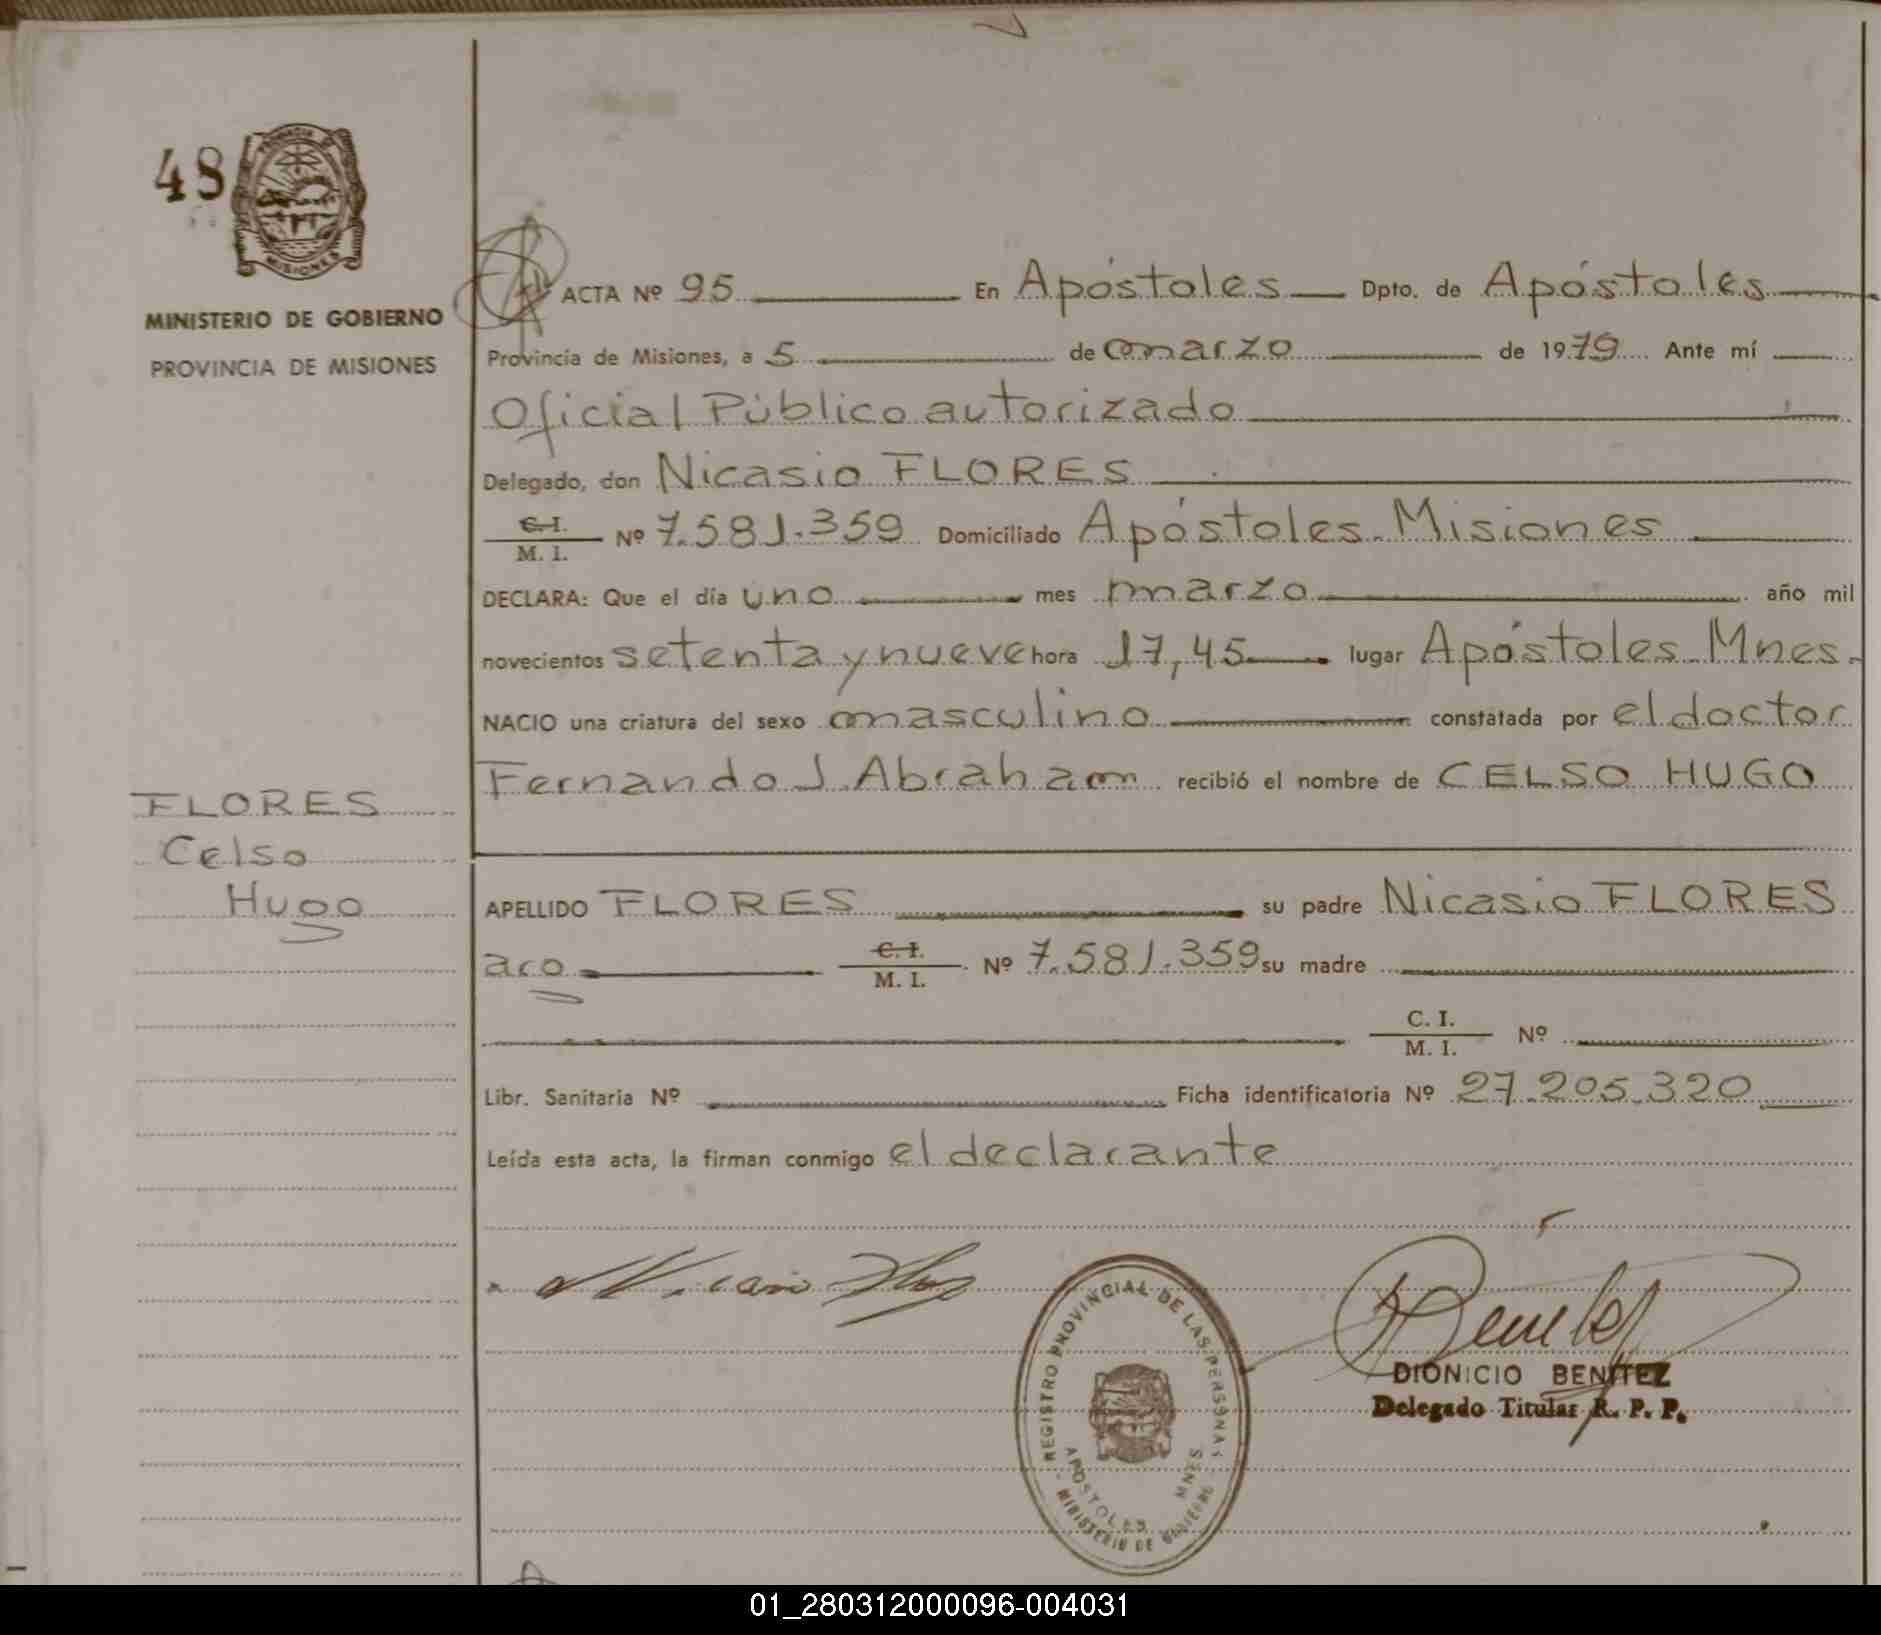 48
PROVINCIA DE
MISIONES
MINISTERIO DE GOBIERNO
PROVINCIA DE MISIONES
FLORES
Celso
Hugo
ACTA Nº 95 En Apóstoles Dpto. de Apóstoles
Provincia de Misiones, a 5 de marzo de 1979 Ante mí
Oficial Público autorizado
Delegado, don Nicasio FLORES
C. I.
M. I. Nº 7.581.359 Domiciliado Apóstoles-Misiones
DECLARA: Que el día uno mes marzo año mil
novecientos setenta y nueve hora 17,45 lugar Apóstoles-Mnes-
NACIO una criatura del sexo masculino constatada por el doctor
Fernando J. Abraham recibió el nombre de CELSO HUGO
APELLIDO FLORES su padre Nicasio FLORES
aro C. I.
M. I. Nº 7.581.359 su madre
C. I.
M. I. Nº
Libr. Sanitaria Nº Ficha identificatoria Nº 27.205.320
Leída esta acta, la firman conmigo el declarante
Nicasio Flores
Benitez
REGISTRO PROVINCIAL DE LAS PERSONAS
APOSTOLES MNES
MINISTERIO DE GOBIERNO
DIONICIO BENITEZ
Delegado Titular R. P. P.
01_280312000096-004031